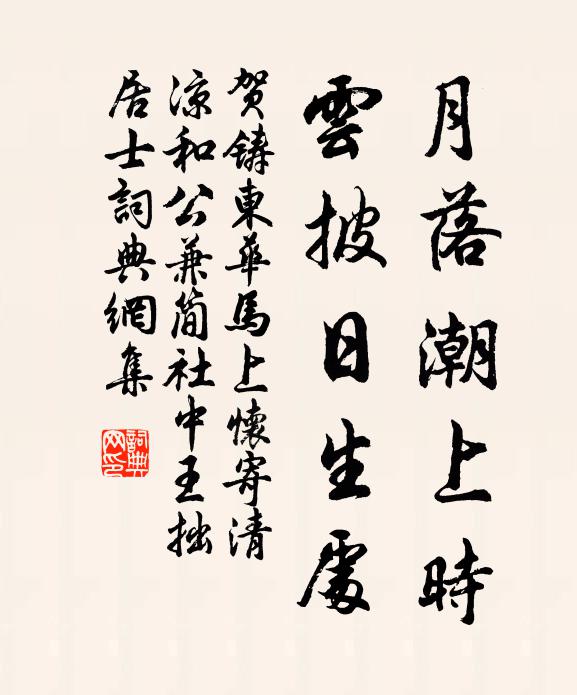 月落潮上時
雲披日生處
贺鑄東華馬上懷寄清
凉和公兼简社中王拙
居士詞典網集
詞典
网印